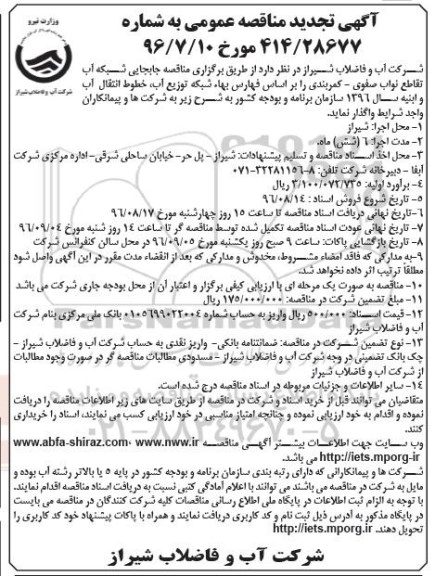 آگهی تجدید مناقصه عمومی به شماره
۴۱۴/۲۸۶۷۷ مورخ ۹۶/۷/۱۰
وزارت نیرو
شرکت آب و فاضلاب شیراز
شرکت آب و فاضلاب شیراز در نظر دارد از طریق برگزاری مناقصه جابجایی شبکه آب
تقاطع نواب صفوی - کمربندی را بر اساس فهارس بهاء شبکه توزیع آب، خطوط انتقال آب
و ابنیه سال ۱۳۹۶ سازمان برنامه و بودجه کشور به شرح زیر به شرکت ها و پیمانکاران
واجد شرایط واگذار نماید.
۱- محل اجرا: شیراز
۲- مدت اجرا: ۶ (شش) ماه.
۳- محل اخذ اسناد مناقصه و تسلیم پیشنهادات: شیراز - پل حر- خیابان ساحلی شرقی- اداره مرکزی شرکت
آبفا - دبیرخانه شرکت تلفن: ۸-۳۲۲۸۱۱۵۶-۰۷۱
۴- برآورد اولیه: ۳/۱۰۰/۰۷۲/۷۳۵ ریال
۵- تاریخ شروع فروش اسناد : ۹۶/۰۸/۱۴
۶- تاریخ نهائی دریافت اسناد مناقصه تا ساعت ۱۵ روز چهارشنبه مورخ ۹۶/۰۸/۱۷
۷- تاریخ نهائی عودت اسناد مناقصه تکمیل شده توسط مناقصه گر تا ساعت ۱۴ روز شنبه مورخ ۹۶/۰۹/۰۴
۸- تاریخ بازگشایی پاکات: ساعت ۹ صبح روز یکشنبه مورخ ۹۶/۰۹/۰۵ در محل سالن کنفرانس شرکت
۹- به مدارکی که فاقد امضاء مشروط، مخدوش و مدارکی که بعد از انقضاء مدت مقرر در این آگهی واصل شود
مطلقاً ترتیب اثر داده نخواهد شد.
۱۰- مناقصه به صورت یک مرحله ای با ارزیابی کیفی برگزار و اعتبار آن از محل بودجه جاری شرکت می باشد
۱۱- مبلغ تضمین شرکت در مناقصه: ۱۷۵/۰۰۰/۰۰۰ ریال
۱۲- قیمت اسناد: ۵۰۰/۰۰۰ ریال واریز به حساب شماره ۰۱۰۵۶۹۹۰۲۲۰۰۴ بانک ملی مرکزی بنام شرکت
آب و فاضلاب شیراز
۱۳- نوع تضمین شرکت در مناقصه: ضمانتنامه بانکی- واریز نقدی به حساب شرکت آب و فاضلاب شیراز -
چک بانک تضمینی در وجه شرکت آب و فاضلاب شیراز - مسدودی مطالبات مناقصه گر در صورت وجود مطالبات
از شرکت آب و فاضلاب شیراز
۱۴- سایر اطلاعات و جزئیات مربوطه در اسناد مناقصه درج شده است.
متقاضیان می توانند قبل از خرید اسناد و شرکت در مناقصه از طریق سایت های زیر اطلاعات مناقصه را دریافت
نموده و اقدام به خود ارزیابی نموده و چنانچه امتیاز مناسبی در خود ارزیابی کسب می نمایند، اسناد را خریداری
کنند.
وب سایت جهت اطلاعات بیشتر آگهی مناقصه www.nww.ir ،www.abfa-shiraz.com
http://iets.mporg-ir می باشد.
شرکت ها و پیمانکارانی که دارای رتبه بندی سازمان برنامه و بودجه کشور در پایه ۵ یا بالاتر رشته آب بوده و
مایل به شرکت در مناقصه می باشند می توانند با اعلام آمادگی کتبی نسبت به دریافت اسناد مناقصه اقدام نمایند.
با توجه به الزام ثبت اطلاعات در پایگاه ملی اطلاع رسانی مناقصات کلیه شرکت کنندگان در مناقصه می بایست
در پایگاه مذکور به آدرس ذیل ثبت نام و کد کاربری دریافت نمایند و همراه با پاکات پیشنهاد خود کد کاربری را
تحویل دهند. http://iets.mporg.ir
شرکت آب و فاضلاب شیراز